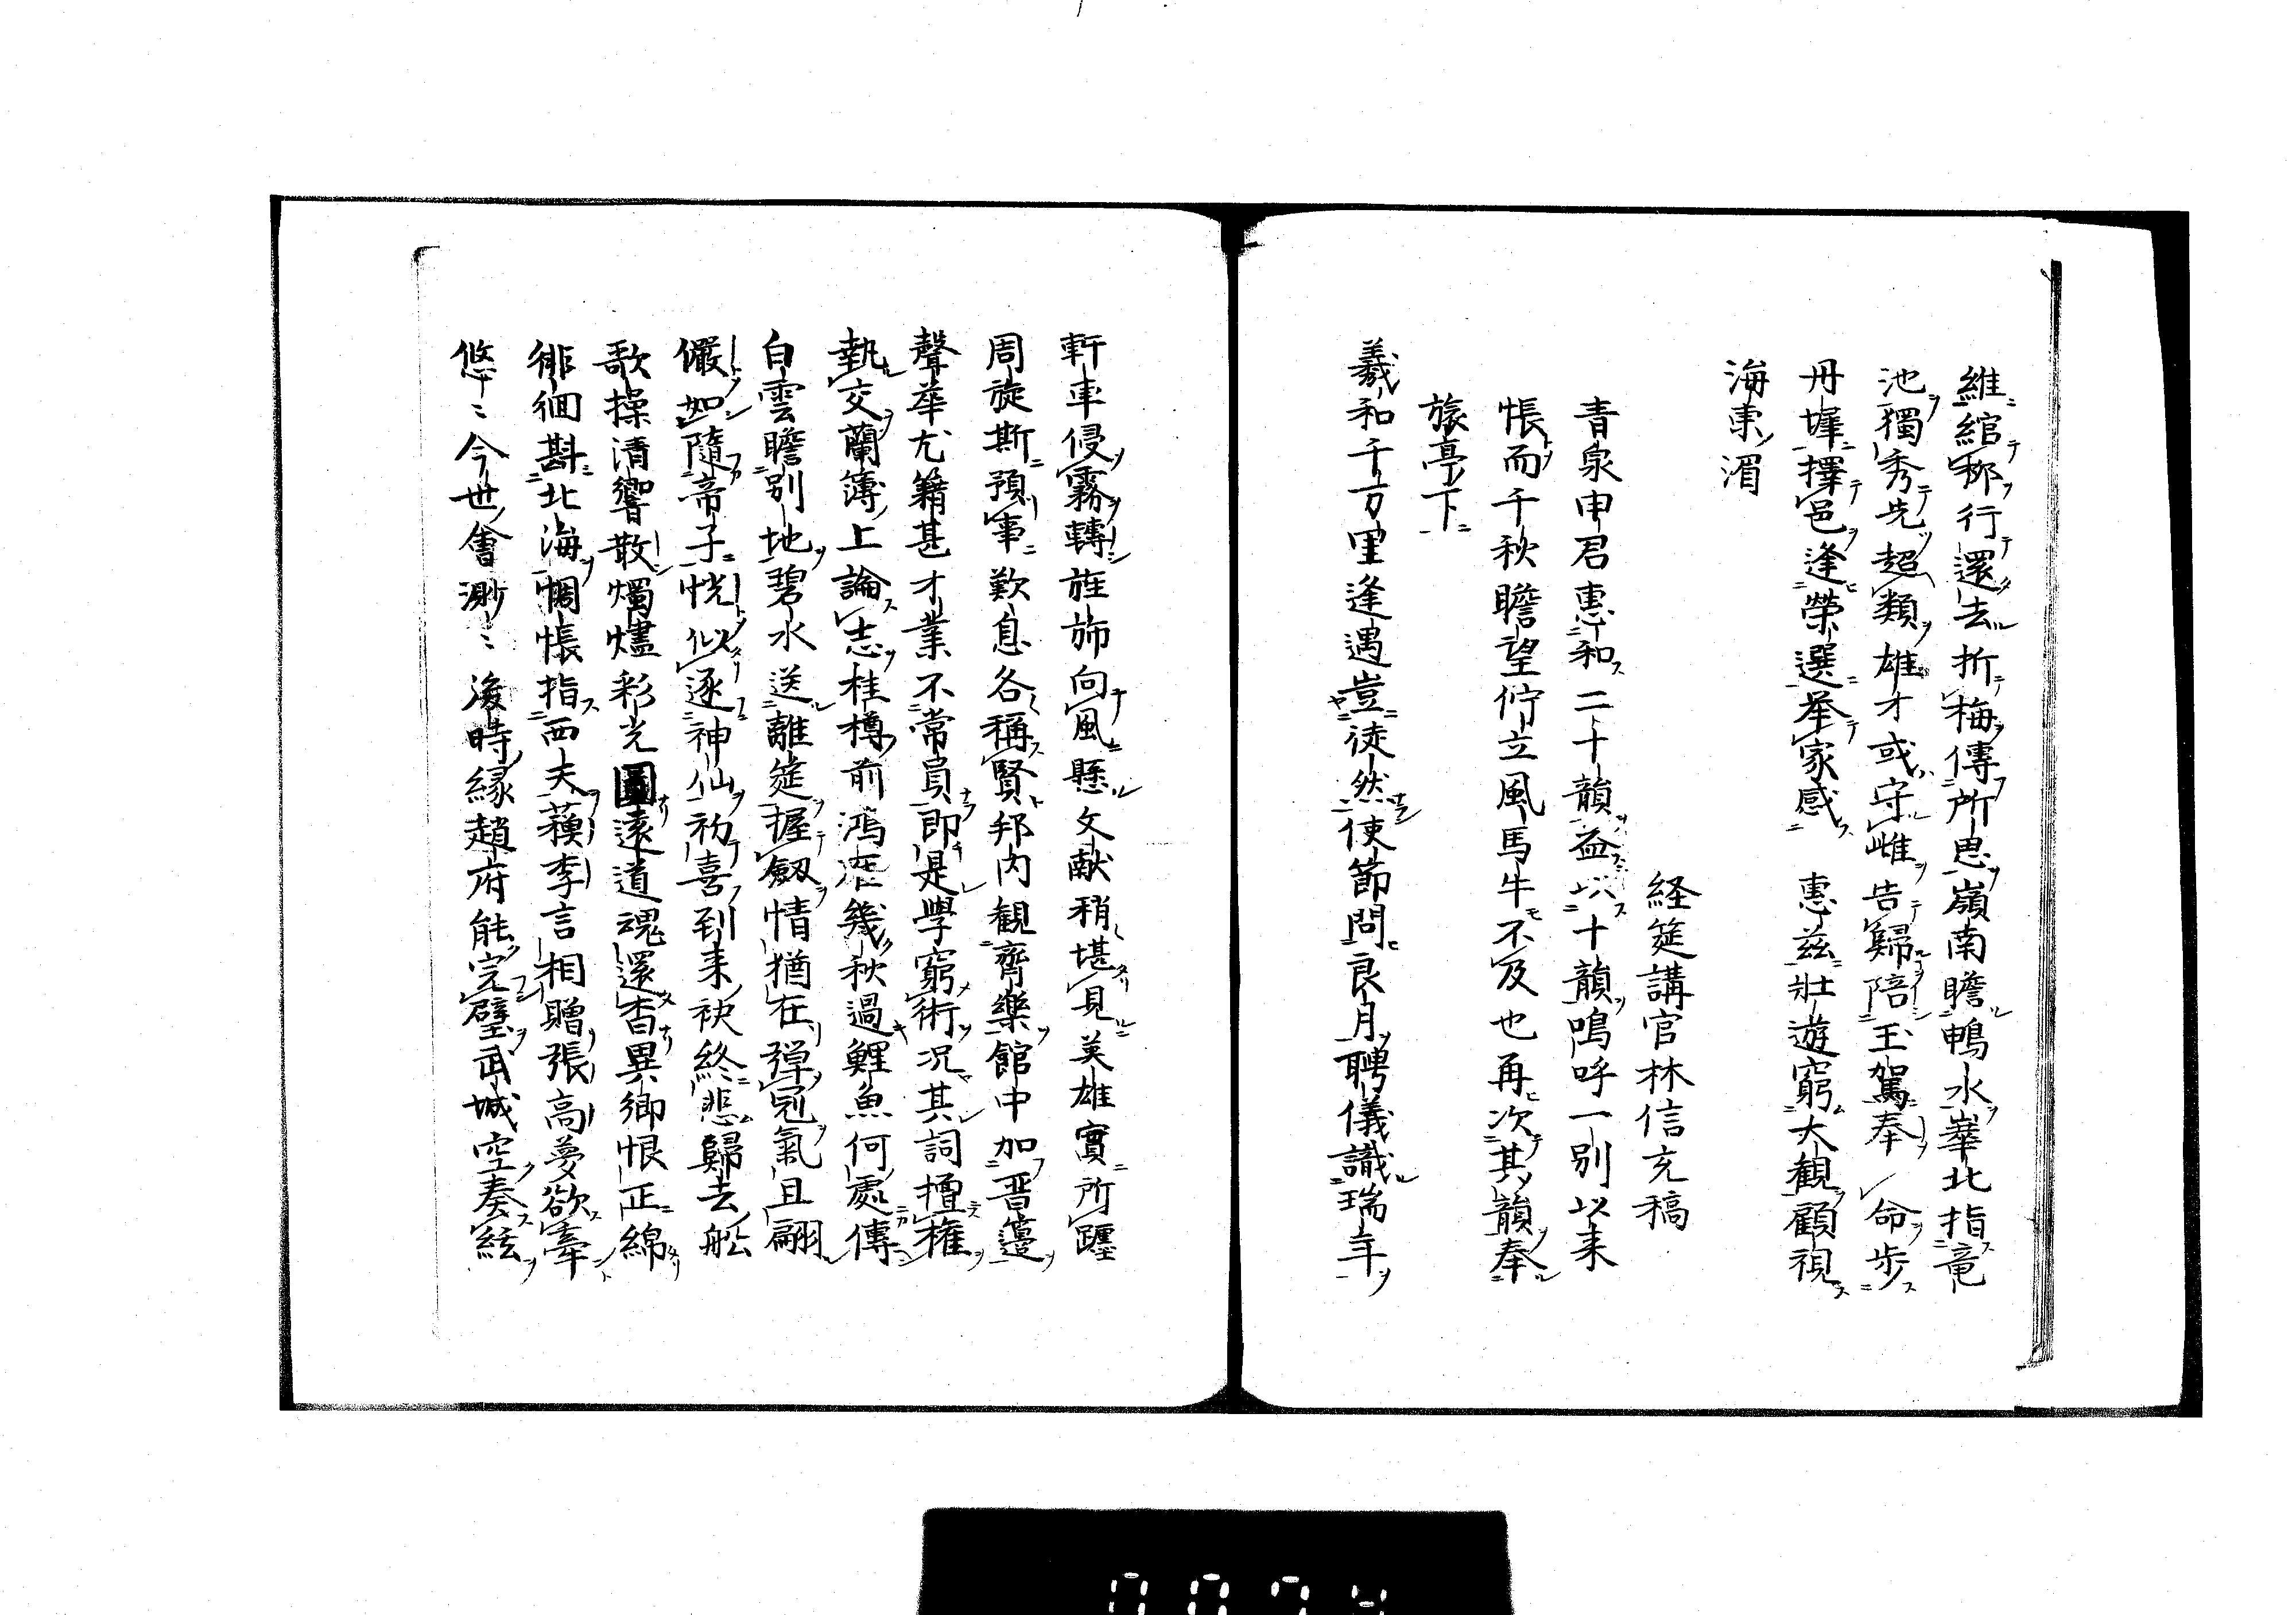 維綰桺行還去折梅傳所思嶺南瞻鴨水峯北指竜
池獨秀先超類雄才或守雌告歸陪玉駕奉命歩
丹墀擇邑逢榮選挙家感　惠茲壯遊窮大観顧視
海東湄
経筵講官林信充稿
青泉申君惠和二十韻益以十韻鳴呼一別以来
悵而千秋瞻望佇立風馬牛不及也再次其韻奉
旅亭下
羲和千万里逢遇豈徒然使節問良月聘儀識瑞年
軒車侵霧轉旌斾向風懸文献稍堪見英雄實所躔
周旋斯預事歎息各稱賢邦内観齊樂館中加晋籩
聲華尤籍甚才業不常員即是學窮術况其詞擅権
執交蘭簿上論志桂樽前鴻雁幾秋過鯉魚何處傳
白雲瞻別地碧水送離筵握劔情猶在彈冠氣且翩
儼如隨帝子恍似逐神仙初喜到来袂終悲歸去舩
歌操清響散燭燼彩光圓遠道魂還杳異郷恨正綿
徘徊斟北海惆悵指西天蘓李言相贈張高夢欲牽
悠〻今世會渺〻後時縁趙府能完璧武城空奏絃